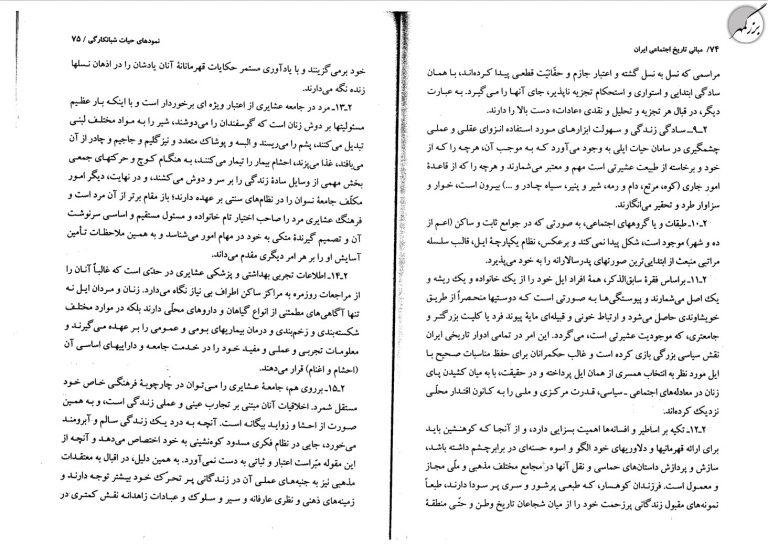 ۷۴/ مبانی تاریخ اجتماعی ایران
مراسمی که نسل به نسل گشته و اعتبار جازم و حقّانیّت قطعی پیدا کرده‌اند، با همان
سادگی ابتدایی و استواری و استحکام تجزیه ناپذیر، جای آنها را می‌گیرد. به عبارت
دیگر، در قبال هر تجزیه و تحلیل و نقدی «عادات» دست بالا را دارند.
۹ـ۲ـ سادگی زندگی و سهولت ابزارهای مورد استفاده انزوای عقلی و عملی
چشمگیری در سامان حیات ایلی به وجود می‌آورد که به موجب آن، هرچه را که از
خود و برخاسته از طبیعت عشیرتی است مهم و معتبر می‌شمارند و هرچه را که از قاعدهٔ
امور جاری (کوه، مرتع، دام و رمه، شیر و پنیر، سیاه چادر و ...) بیرون است، خوار و
سزاوار طرد و تحقیر می‌انگارند.
۱۰ـ۲ـ طبقات و یا گروههای اجتماعی، به صورتی که در جوامع ثابت و ساکن (اعم از
ده و شهر) موجود است، شکل پیدا نمی‌کند و برعکس، نظام یکپارچهٔ ایل، قالب سلسله
مراتبی منبعث از ابتدایی‌ترین صورتهای پدرسالارانه را به خود می‌پذیرد.
۱۱ـ۲ـ براساس فقرهٔ سابق‌الذکر، همهٔ افراد ایل خود را از یک خانواده و یک ریشه و
یک اصل می‌شمارند و پیوستگی‌ها به صورتی است که دوستیها منحصراً از طریق
خویشاوندی حاصل می‌شود و ارتباط خونی و قبیله‌ای مایهٔ پیوند فرد با کلیت بزرگتر و
جامعتری، که موجودیت عشیرتی است، می‌گردد. این امر در تمامی ادوار تاریخی ایران
نقش سیاسی بزرگی بازی کرده است و غالب حکمرانان برای حفظ مناسبات صحیح با
ایل مورد نظر به انتخاب همسری از همان ایل پرداخته و در حقیقت، با به میان کشیدن پای
زنان در معادله‌های اجتماعی ـ سیاسی، قدرت مرکزی و ملی را به کانون اقتدار محلّی
نزدیک کرده‌اند.
۱۲ـ۲ـ تکیه بر اساطیر و افسانه‌ها اهمیت بسزایی دارد، و از آنجا که کوهنشین باید
برای ارائه قهرمانیها و دلاوریهای خود الگو و اسوه حسنه‌ای در برابر چشم داشته باشد،
سازش و پردازش داستان‌های حماسی و نقل آنها در مجامع مختلف مذهبی و ملّی مجاز
و معمول است. فرزندان کوهسار، که طبعی پرشور و سری پر سودا دارند، طبعاً
نمونه‌های مقبول زندگانی پرزحمت خود را از میان شجاعان تاریخ وطن و حتّی منطقهٔ
نمودهای حیات شبانکارگی / ۷۵
خود برمی‌گزینند و با یادآوری مستمر حکایات قهرمانانهٔ آنان یادشان را در اذهان نسلها
زنده نگه می‌دارند.
۱۳ـ۲ـ مرد در جامعه عشایری از اعتبار ویژه ای برخوردار است و با اینکه بار عظیم
مسئولیتها بر دوش زنان است که گوسفندان را می‌دوشند، شیر را به مواد مختلف لبنی
تبدیل می‌کنند، پشم را می‌ریسند و البسه و پوشاک متعدد و نیز گلیم و جاجیم و چادر از آن
می‌بافند، غذا می‌پزند، احشام بیمار را تیمار می‌کنند، به هنگام کوچ و حرکتهای جمعی
بخش مهمی از وسایل سادهٔ زندگی را بر سر و دوش می‌کشند، و در نهایت، دیگر امور
مکلّف جامعهٔ نسوان را در نظام‌های سنتی بر عهده دارند؛ باز مقام برتر از آن مرد است و
فرهنگ عشایری مرد را صاحب اختیار تام خانواده و مسئول مستقیم و اساسی سرنوشت
آن و تصمیم گیرندهٔ متکی به خود در مهام امور می‌شناسد و به همین ملاحظات تأمین
آسایش او را بر هر امر دیگری مقدم می‌داند.
۱۴ـ۲ـ اطلاعات تجربی بهداشتی و پزشکی عشایری در حدّی است که غالباً آنان را
از مراجعات روزمره به مراکز ساکن اطراف بی نیاز نگاه می‌دارد. زنان و مردان ایل نه
تنها آگاهی‌های مطمئنی از انواع گیاهان و داروهای محلّی دارند بلکه در موارد مختلف
شکسته‌بندی و زخم‌بندی و درمان بیماریهای بومی و عمومی را بر عهده می‌گیرند و
معلومات تجربی و عملی و مفید خود را در خدمت جامعه و داراییهای اساسی آن
(احشام و اغنام) قرار می‌دهند.
۱۵ـ۲ـ برروی هم، جامعهٔ عشایری را می‌توان در چارچوبهٔ فرهنگی خاص خود
مستقل شمرد. اخلاقیات آنان مبتنی بر تجارب عینی و عملی زندگی است، و به همین
صورت از احشا و زواید بیگانه است. آنچه به درد یک زندگی سالم و آبرومند
می‌خورد، جایی در نظام فکری مسدود کوه‌نشینی به خود اختصاص می‌دهد و آنچه از
این مقوله مبّراست اعتبار و ثباتی به دست نمی‌آورد. به همین دلیل، در اقبال به معتقدات
مذهبی نیز به جنبه‌های عملی آن در زندگانی پر تحرک خود بیشتر توجه دارند و
زمینه‌های ذهنی و نظری عارفانه و سیر و سلوک و عبادات زاهدانه نقش کمتری در